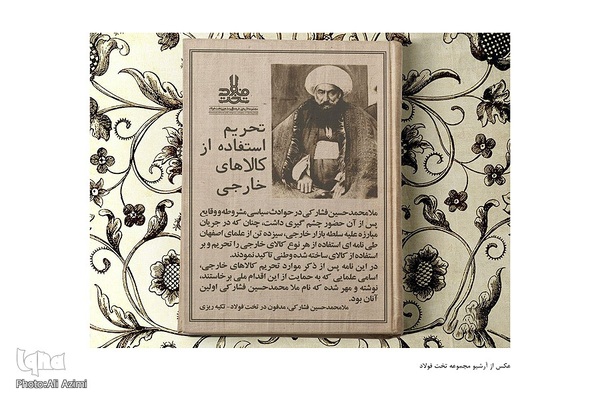 تخت فولاد
تحریم
استفاده از
کالاهای
خارجی
ملامحمدحسین فشارکی در حوادث سیاسی مشروطه و وقایع
پس از آن حضور چشم گیری داشت، چنان که در جریان
مبارزه علیه سلطه بازار خارجی، سیزده تن از علمای اصفهان
طی نامه ای استفاده از هر نوع کالای خارجی را تحریم و بر
استفاده از کالای ساخته شده وطنی تاکید نمودند.
در این نامه پس از ذکر موارد تحریم کالاهای خارجی،
اسامی علمایی که به حمایت از این اقدام ملی برخاستند،
نوشته و مهر شده که نام ملا محمدحسین فشارکی اولین
آنان بود.
ملامحمدحسین فشارکی، مدفون در تخت فولاد - تکیه ریزی
عکس از آرشیو مجموعه تخت فولاد
iqna
Photo:Ali Azimi